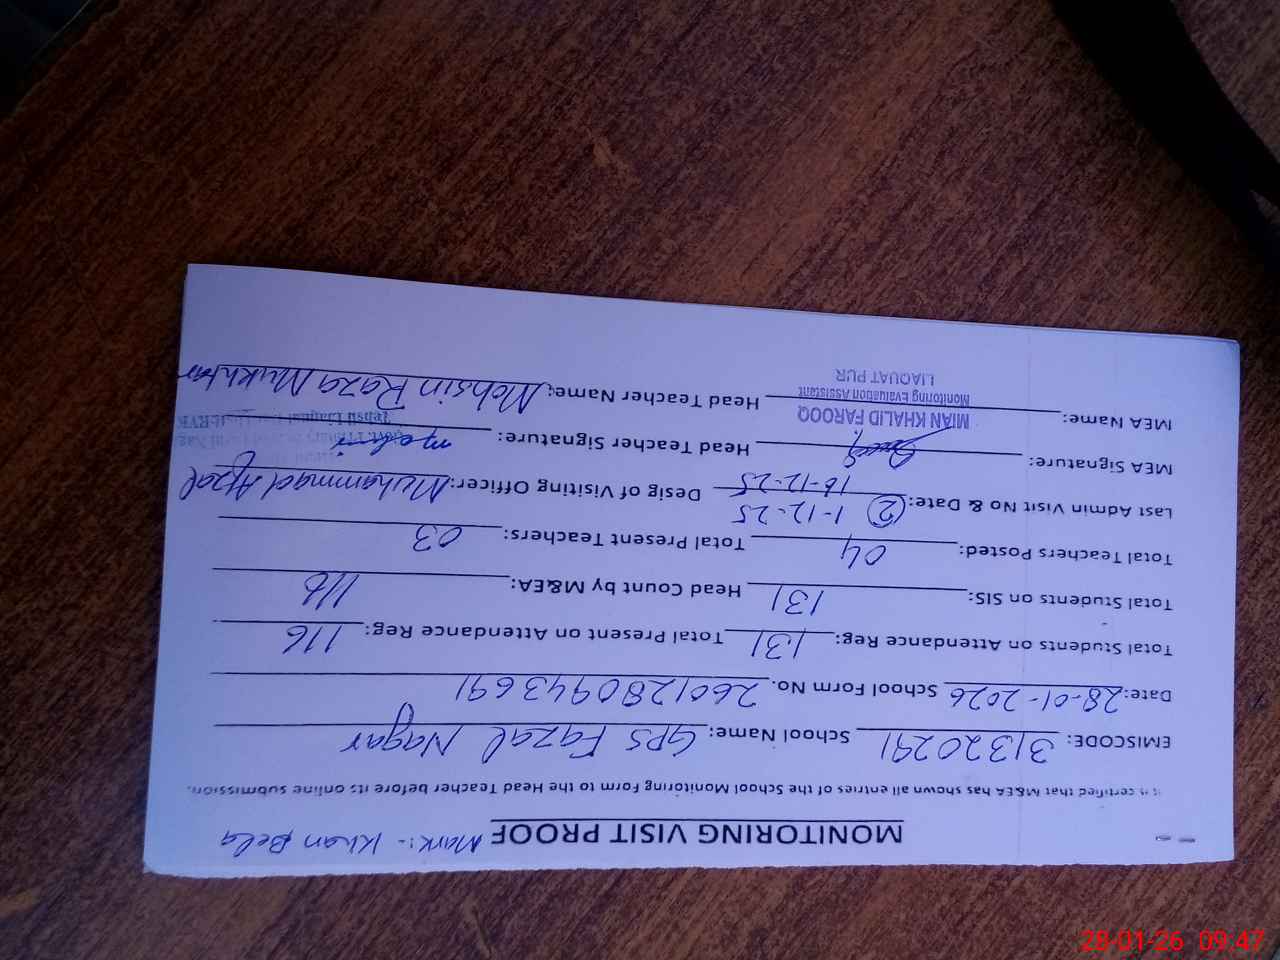 MONITORING VISIT PROOF Mark:- Khan Bela
It is certified that M&EA has shown all entries of the School Monitoring Form to the Head Teacher before its online submission.
EMISCODE: 31320291 School Name: GPS Fazal Nagar
Date: 28-01-2026 School Form No. 2601280943691
Total Students on Attendance Reg: 131 Total Present on Attendance Reg: 116
Total Students on SIS: 131 Head Count by M&EA: 116
Total Teachers Posted: 04 Total Present Teachers: 03
Last Admin Visit No & Date: 2 1-12-25 16-12-25 Desig of Visiting Officer: Muhammad Afzal
MEA Signature: Head Teacher Signature:
MEA Name: Head Teacher Name: Mohsin Raza Mukhtar
MIAN KHALID FAROOQ
Monitoring Evaluation Assistant
LIAQUAT PUR
28-01-26 09:47